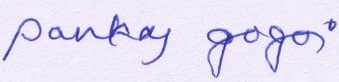 pankaj gogoi